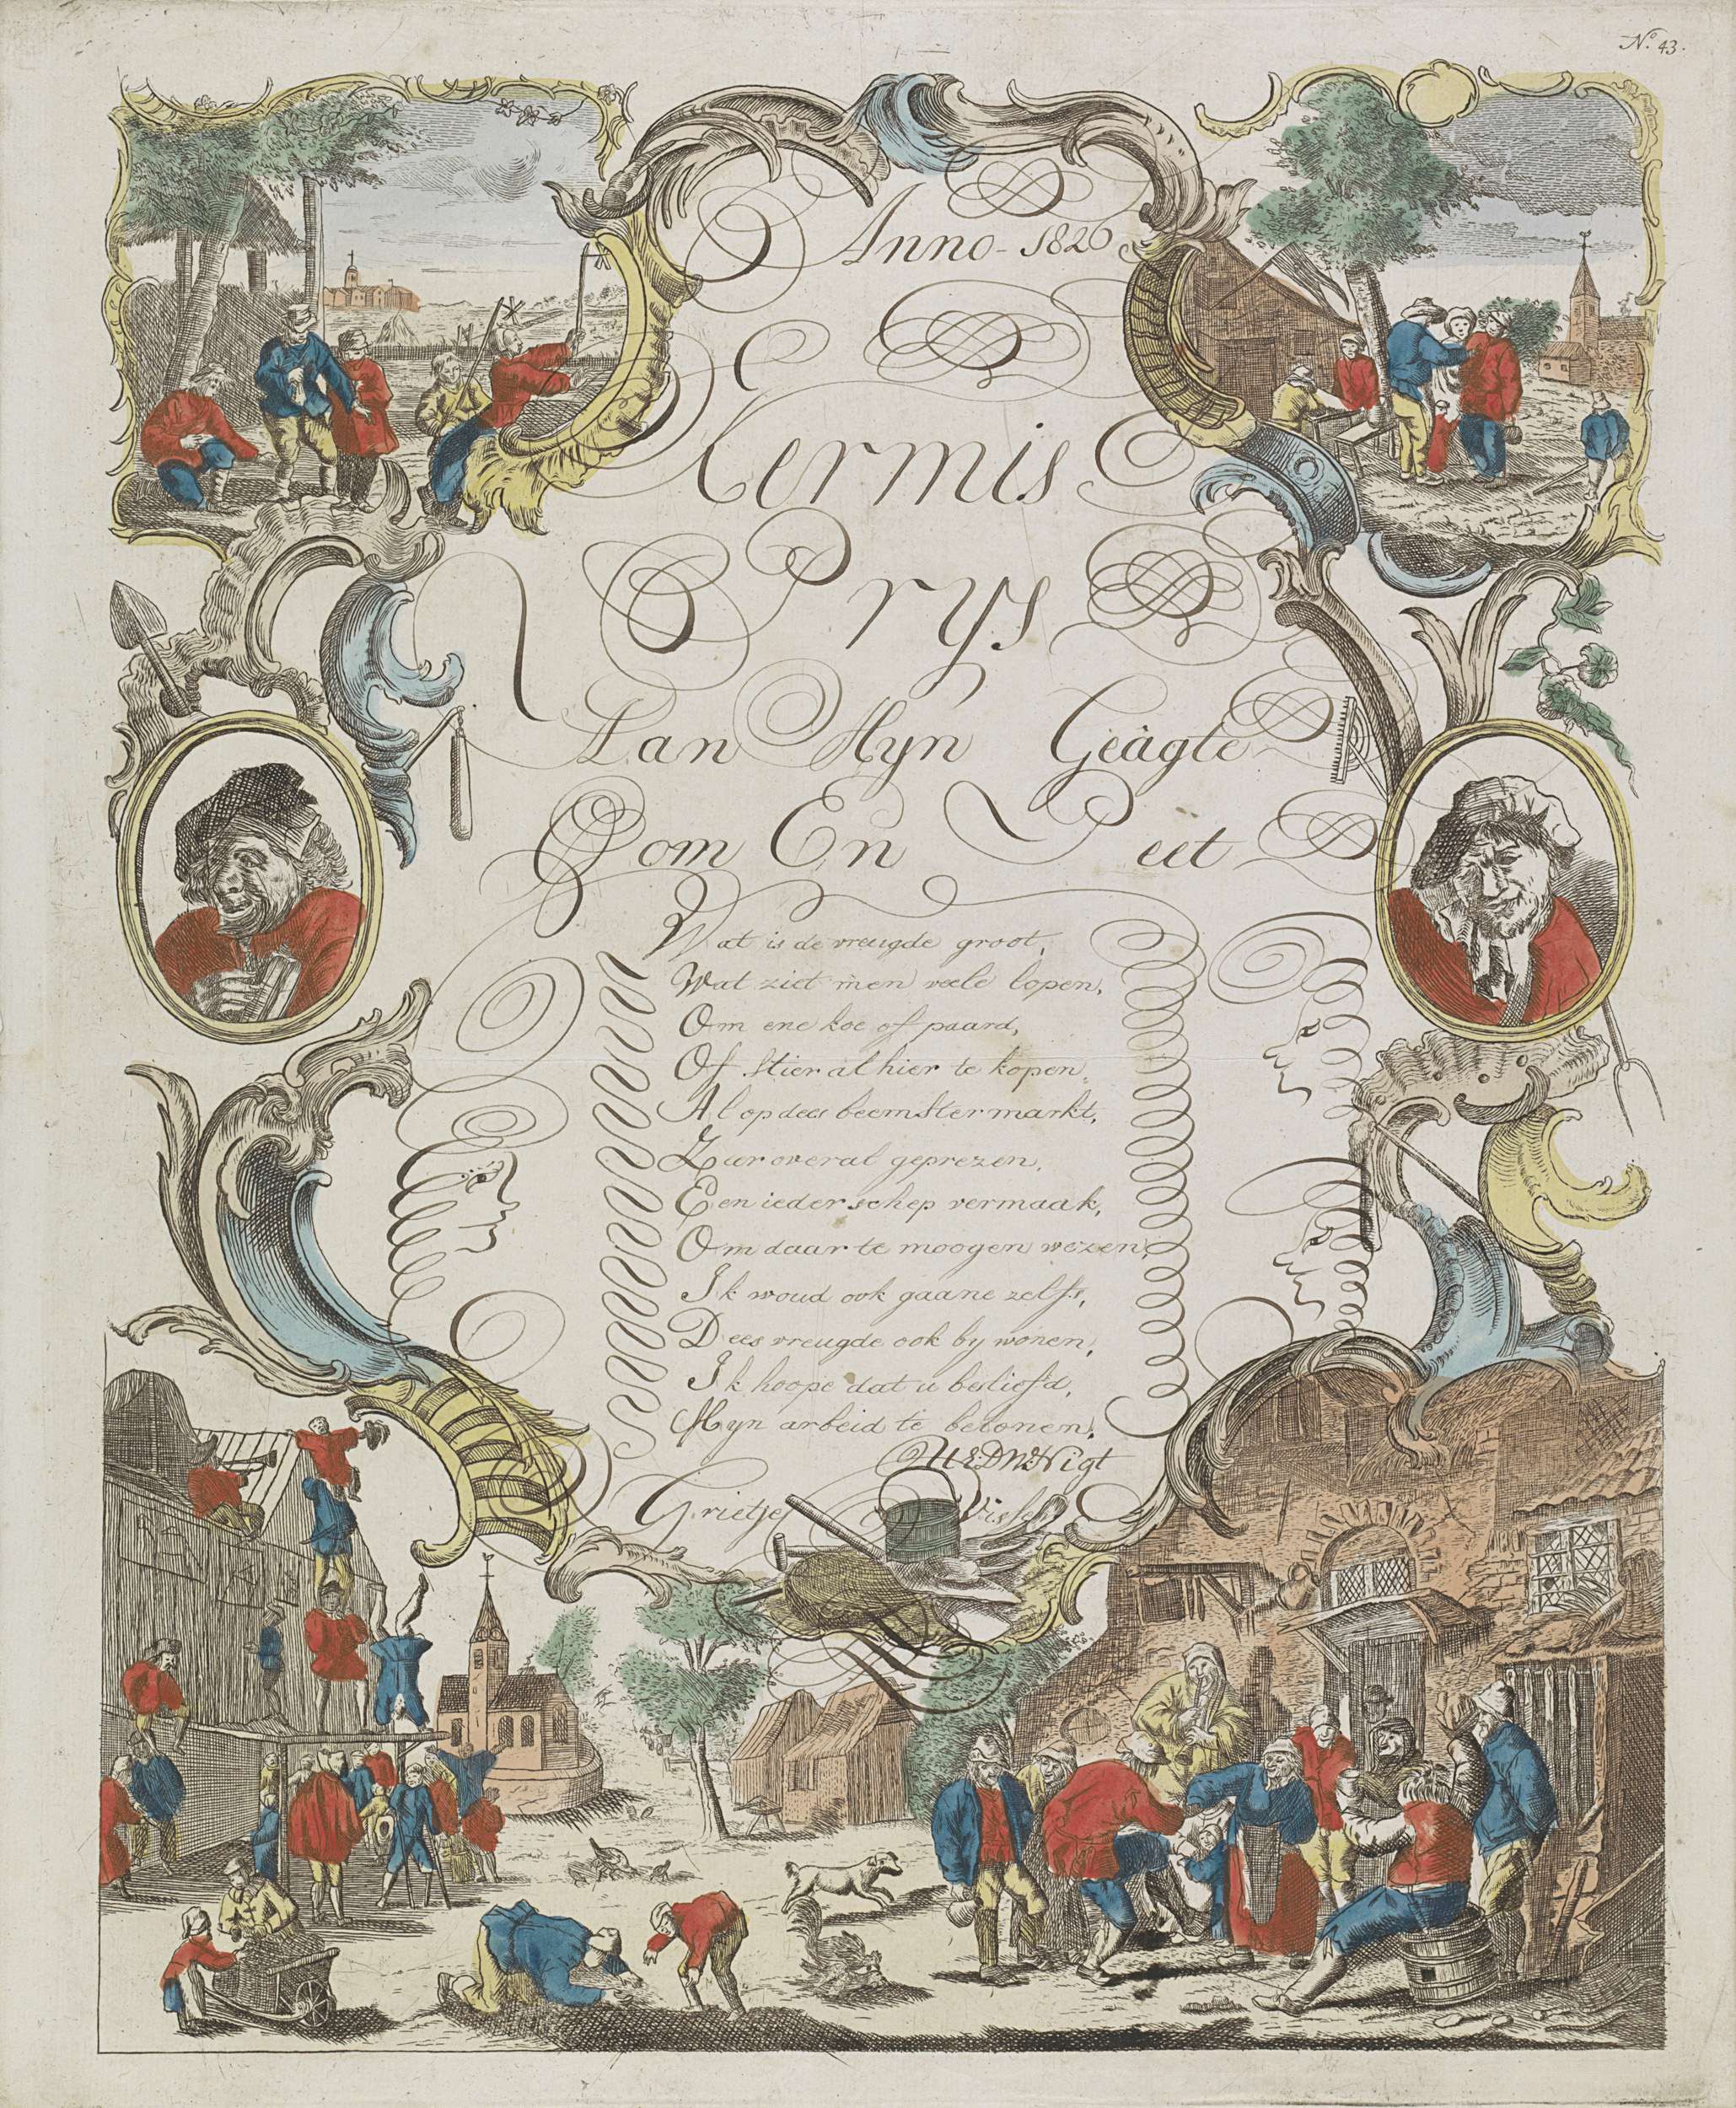 No. 43.
Anno - 1826
Kermis
Prys
Aan Myn Geàgte
Oom En Peet
Wat is de vreugde groot,
Wat ziet men veele lopen,
Om ene koe of paard,
Of stier al hier te kopen,
Al op dees beemster markt,
Zeer overal geprezen,
Een ieder schep vermaak,
Om daar te moogen wezen,
Ik woud ook gaane zelfs,
Dees vreugde ook by wonen,
Ik hoope dat u beliefd,
Myn arbeid te belonen,
Nigt
Grietje